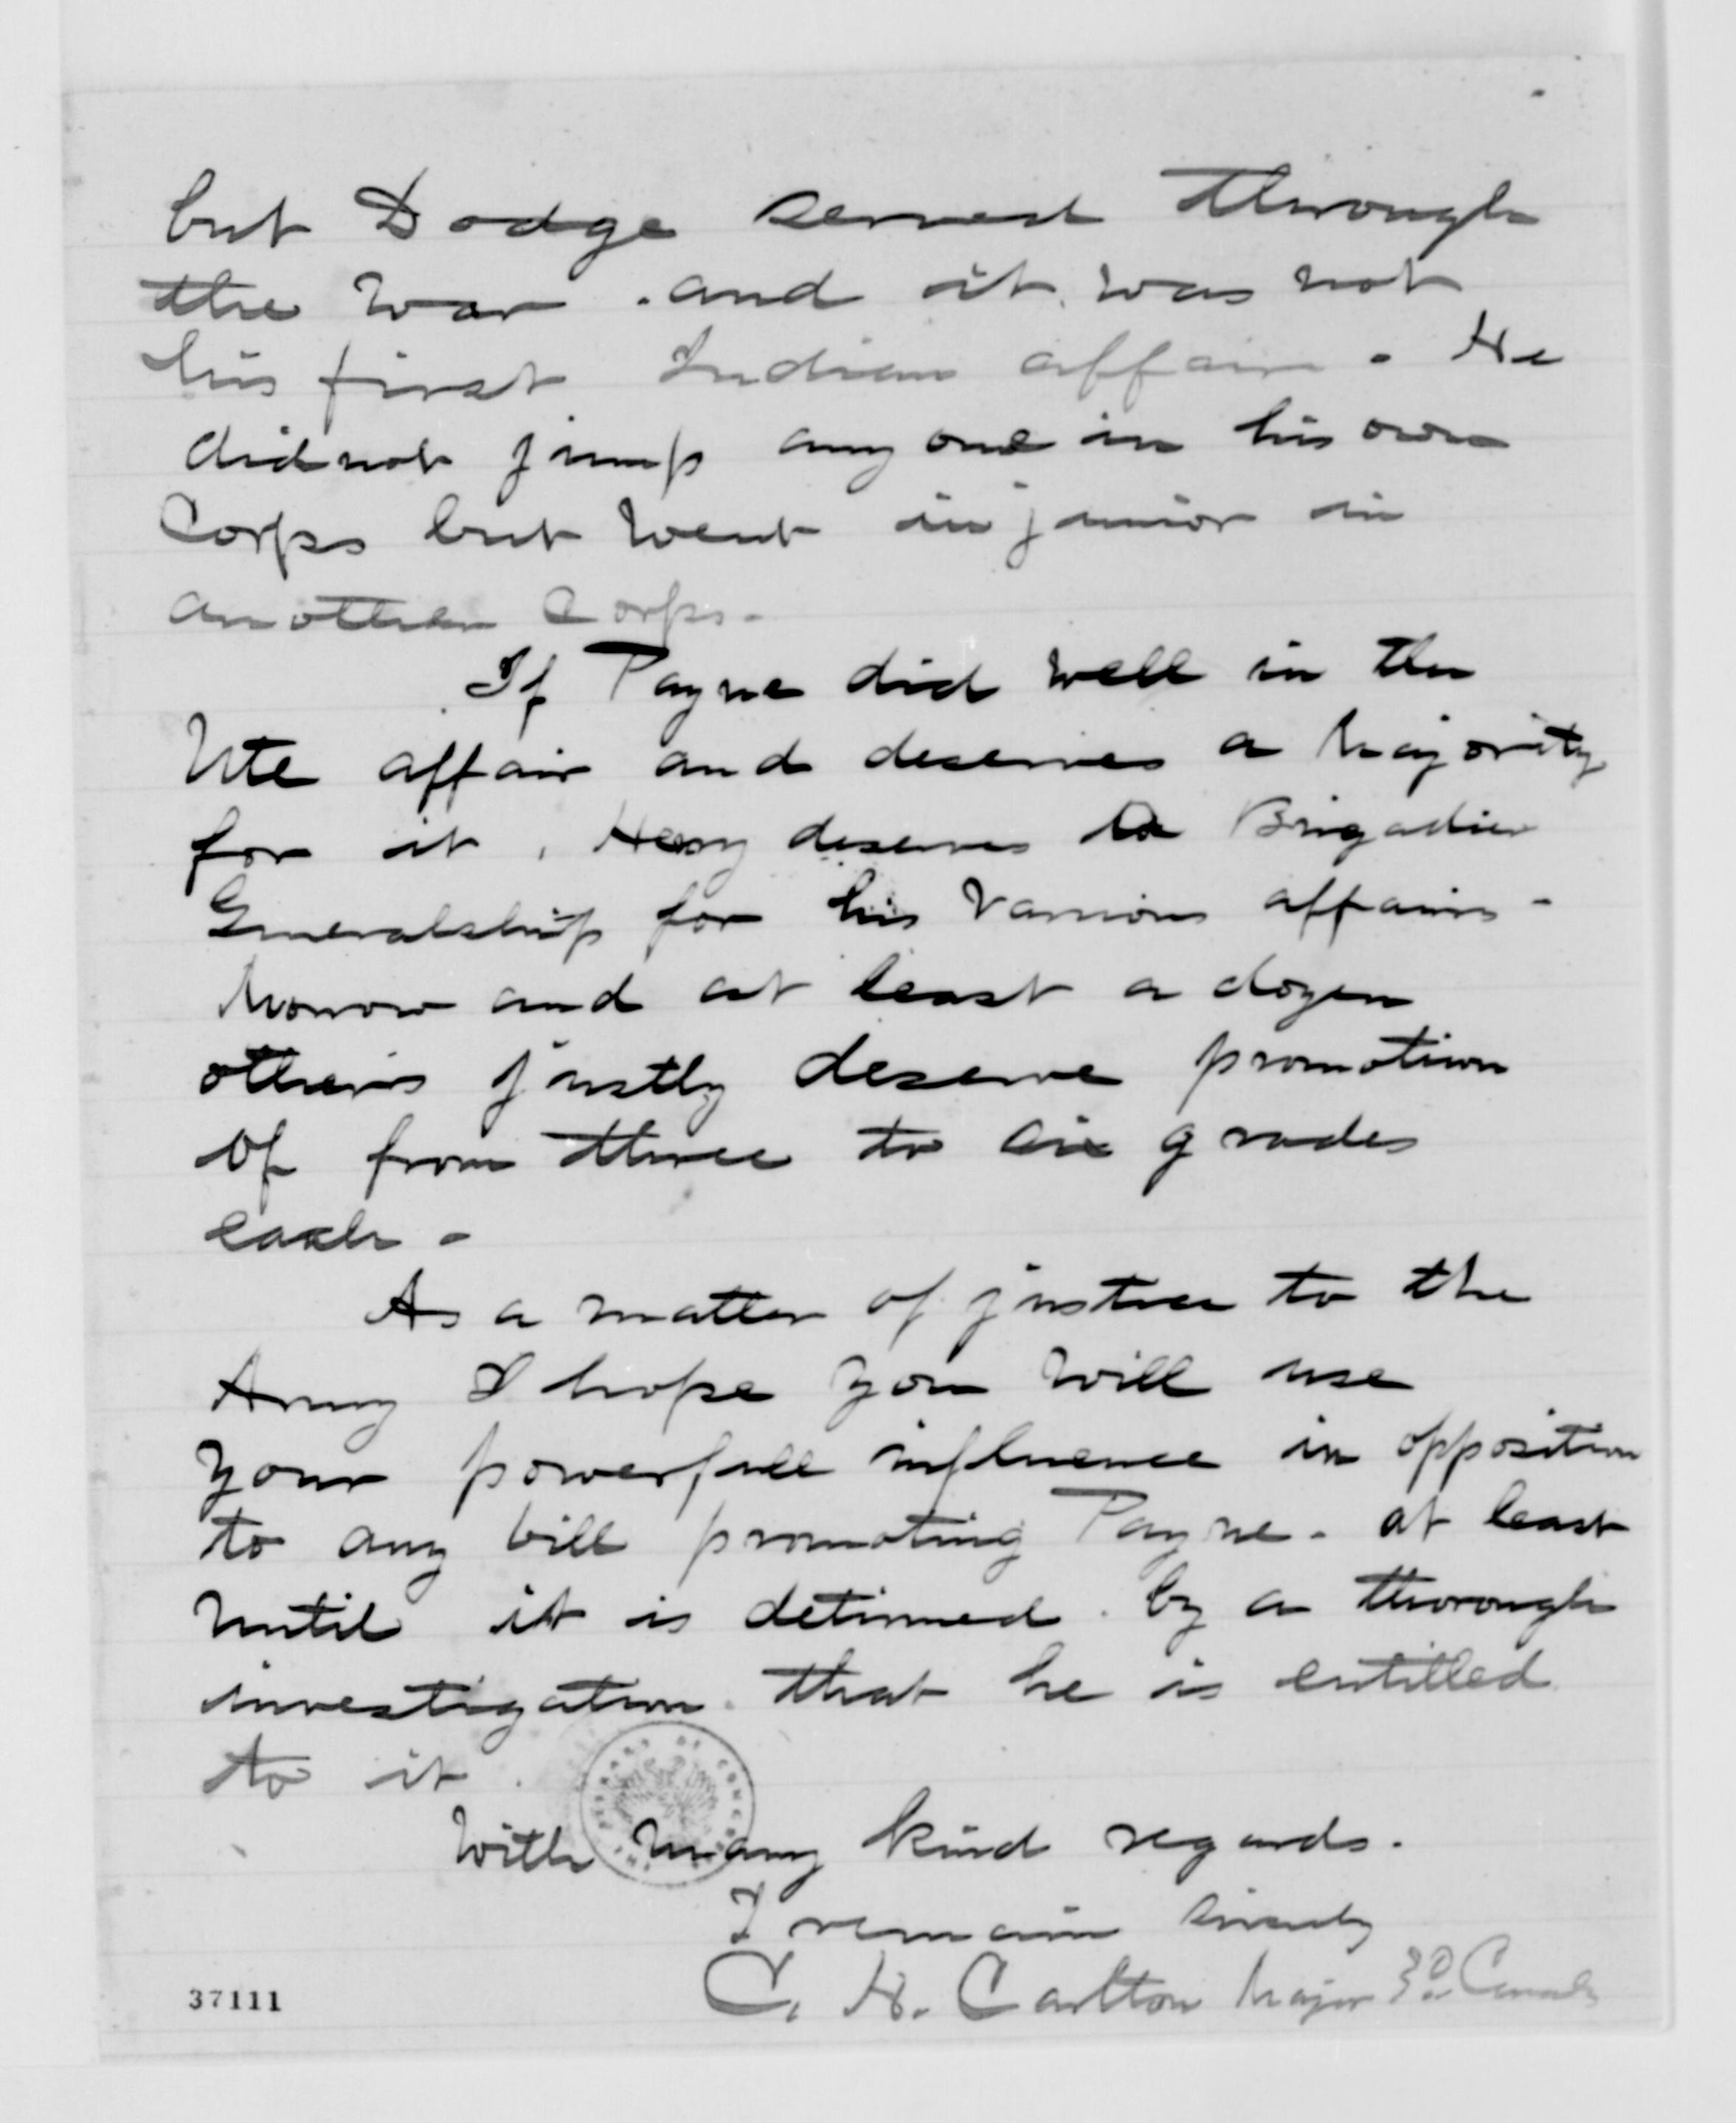 but Dodge served through
the war . and it was not
his first Indian affair . He
did not jump any one in his own
Corps but went in junior in
another Corps -
If Payne did well in the
Ute affair and deserves a Majority
for it , Henry deserves a Brigadier
Generalship for his various affairs -
Morrow and at least a dozen
others justly deserve promotion
of from three to six grades
each -
As a matter of justice to the
Army I hope you will use
your powerfull influence in opposition
to any bill promoting Payne - at least
until it is detirmed . by a thorough
investigation . that he is entitled
to it .
With many kind regards .
I remain sincerely
C. H. Carlton Major 3D Cavaly
37111